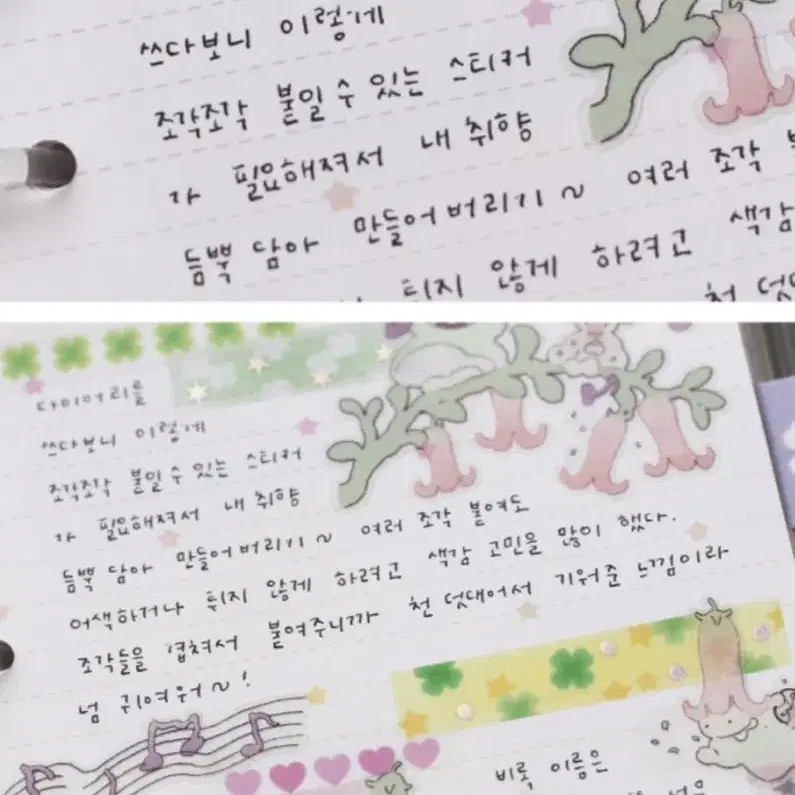 쓰다보니 이렇게
조각조각 붙일 수 있는 스티커
가 필요해져서 내 취향
듬뿍 담아 만들어버리기 ~ 여러 조각
튀지 않게 하려고 색감
천
다이어리를
쓰다보니 이렇게
조각조각 붙일 수 있는 스티커
가 필요해져서 내 취향
듬뿍 담아 만들어버리기 ~ 여러 조각 붙여도
어색하거나 튀지 않게 하려고 색감 고민을 많이 했다.
조각들을 겹쳐서 붙여주니까 천 덧대어서 기워준 느낌이라
넘 귀여워 ~ !
비록 이름은